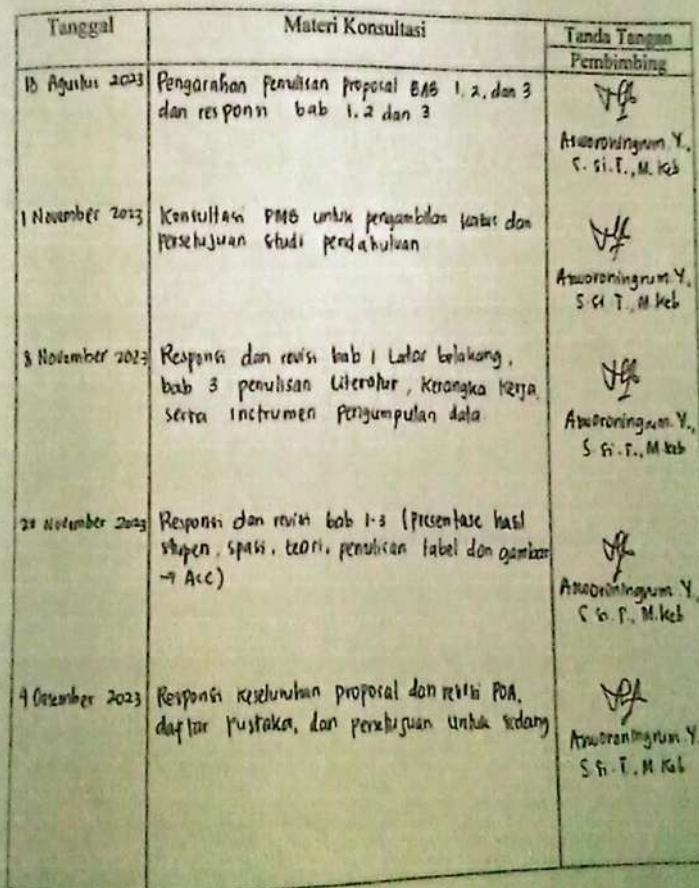 Tanggal
Materi Konsultasi
Tanda Tangan
Pembimbing
18 Agustus 2023
Pengarahan penulisan proposal BAB 1, 2, dan 3
dan responsi bab 1, 2 dan 3
Asworoningrum Y.,
S. Si. T., M. Keb
1 November 2023
Konsultasi PMB untuk pengambilan kasus dan
persetujuan studi pendahuluan
Asworoningrum Y.,
S. Si T., M Keb
8 November 2023
Responsi dan revisi bab 1 Latar belakang,
bab 3 penulisan Literatur, Kerangka Kerja,
serta Instrumen Pengumpulan data.
Asworoningrum Y.,
S. Si. T., M Keb
November 2023
Responsi dan revisi bab 1-3 (Presentase hasil
stupen, spasi, teori, penulisan tabel dan gambar
→ Acc)
Asworoningrum Y.
S. Si. T., M. Keb
Desember 2023
Responsi keseluruhan proposal dan revisi POA,
daftar Pustaka, dan persetujuan untuk sidang
Asworoningrum Y
S. Si. T., M Keb